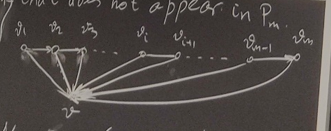 that does not appear in Pₘ.
v₁ v₂ v₃ ..... vᵢ vᵢ₊₁ ...... vₘ₋₁ vₘ
v